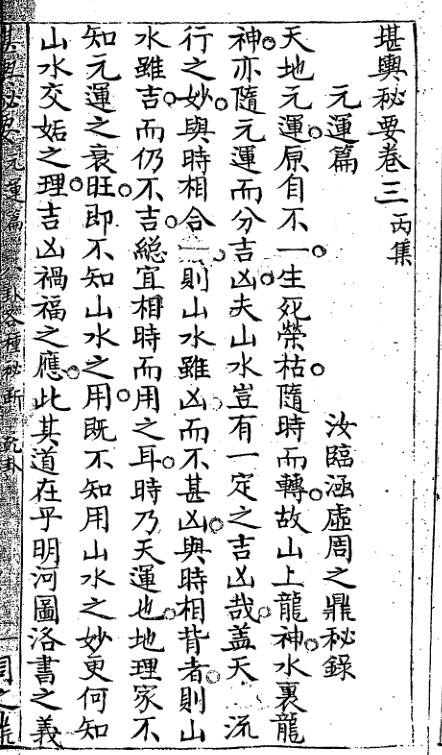 堪輿秘要卷三 丙集
元運篇
汝臨涵虛周之鼎秘錄
天地元運。原自不一。生死榮枯。隨時而轉。故山上龍神。水裏龍
神。亦隨元運而分吉凶。夫山水豈有一定之吉凶哉。蓋天 流
行之妙。與時相合 則山水雖凶而不甚凶。與時相背者。則山
水雖吉。而仍不吉。緫宜相時而用之耳。時乃天運也。地理家不
知元運之衰旺。即不知山水之用。既不知用山水之妙更何知
山水交姤之理。吉凶禍福之應。此其道在乎明河圖洛書之義
元運篇 卦各種秘斷
周之